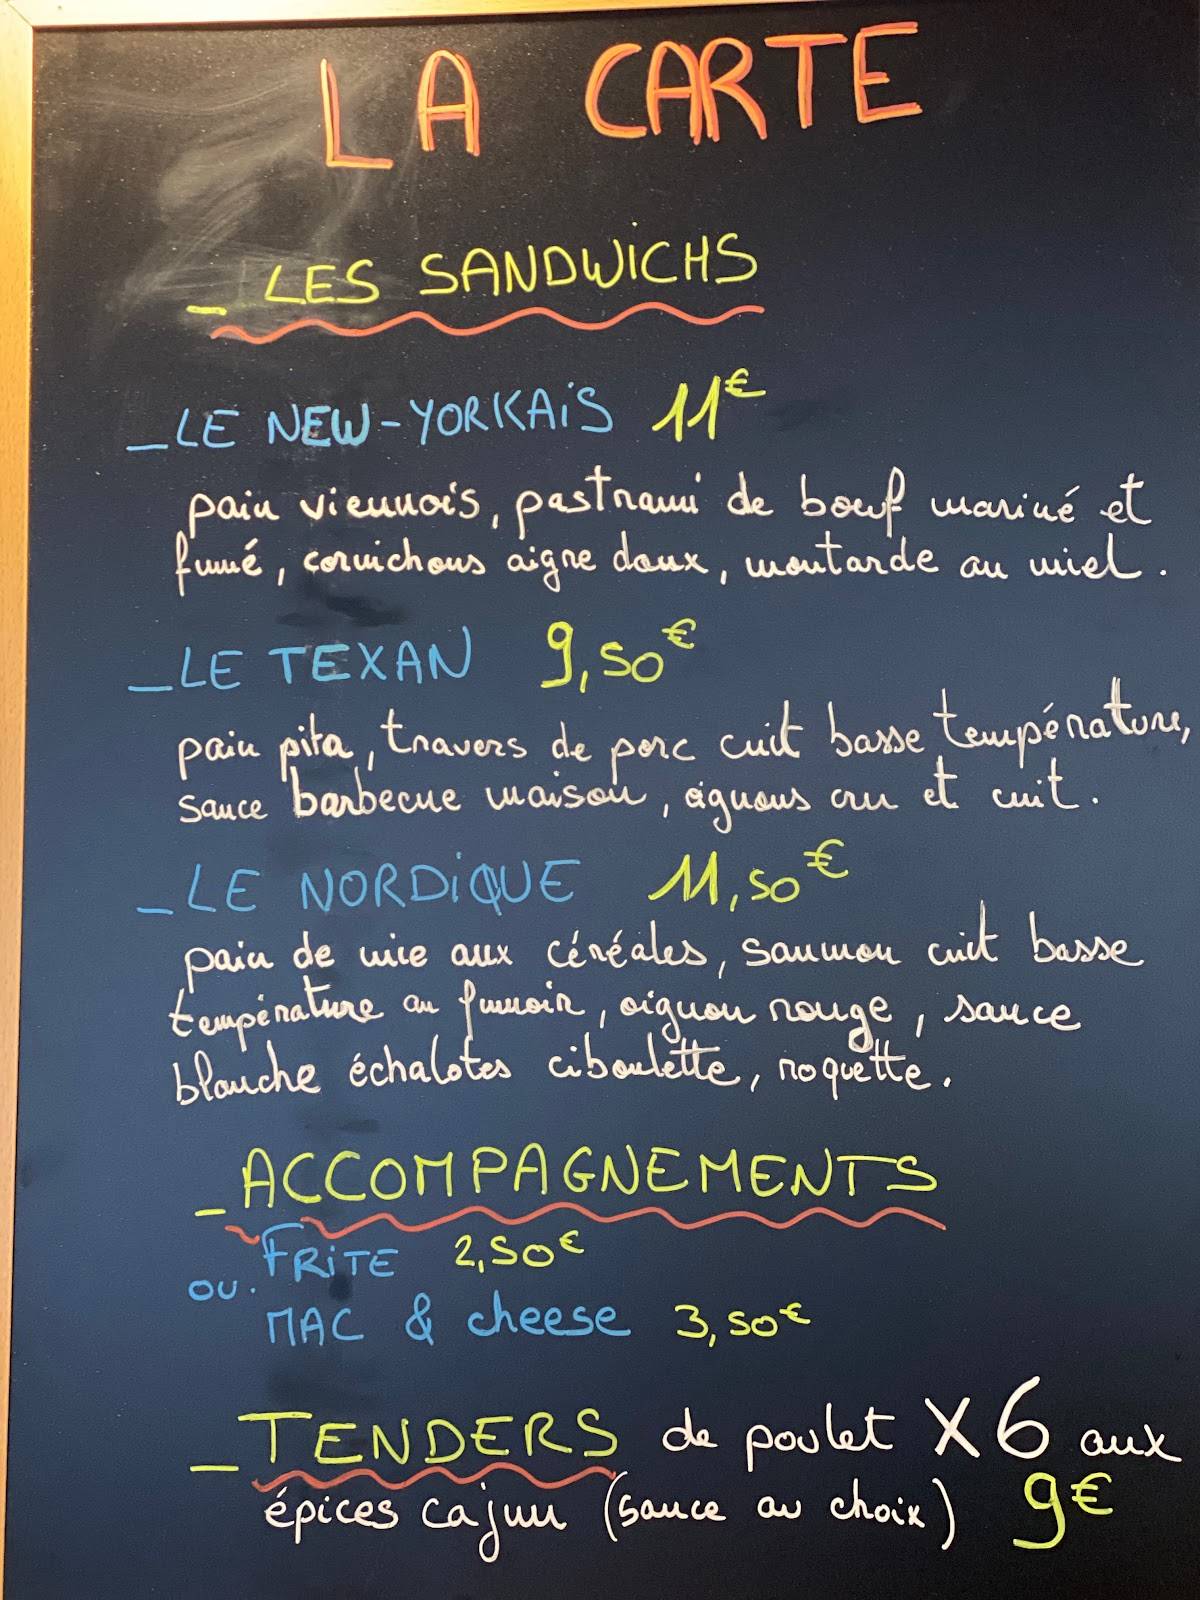 LA CARTE
_ LES SANDWICHS
_LE NEW-YORKAIS 11€
pain viennois, pastrami de bœuf mariné et
fumé, cornichons aigre doux, moutarde au miel.
_LE TEXAN 9,50€
pain pita, travers de porc cuit basse température,
sauce barbecue maison, oignons cru et cuit.
_LE NORDIQUE 11,50€
pain de mie aux céréales, saumon cuit basse
température au fumoir, oignon rouge, sauce
blanche échalotes ciboulette, roquette.
_ACCOMPAGNEMENTS
FRITE 2,50€
OU.
MAC & cheese 3,50€
_TENDERS de poulet X6 aux
épices cajun (sauce au choix) 9€